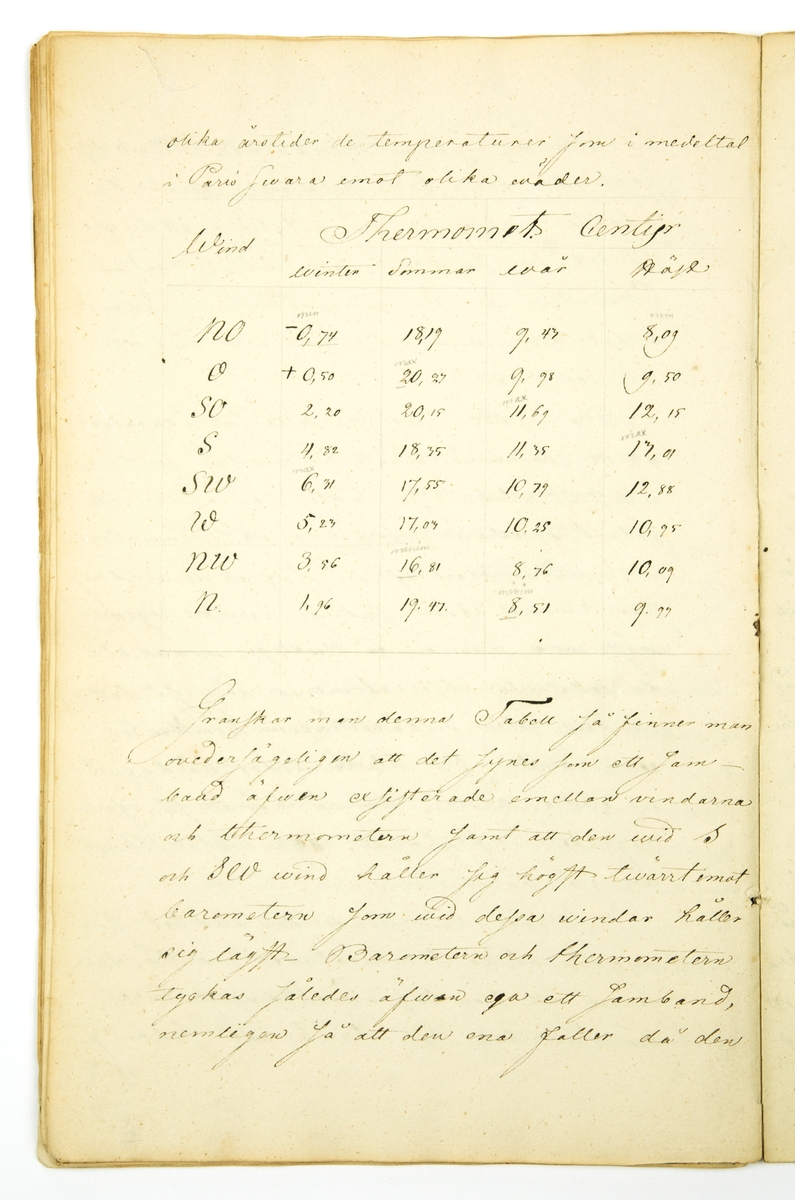 olika årstider de temperaturer som i medeltal
i Paris swara emot olika wäder.
Wind Thermomet. Centigr
winter Sommar wår Höst
min min
NO -0,74 18,19 9,43 8,09
max
O +0,50 20,27 9,98 9,50
max
SO 2,20 20,15 11,69 12,15
max
S 4,82 18,35 11,35 13,01
max
SW 6,31 17,55 10,79 12,88
W 5,23 17,03 10,25 10,95
minim
NW 3,56 16,81 8,76 10,09
minim
N. 1,96 19.47. 8,51 9.99
Granskar man denna Tabell så finner man
ovedersägeligen att det synes som ett sam-
band äfwen exsisterade emellan vindarna
och thermometern samt att den wid S
och SW wind håller sig högst twärrtemot
barometern som wid dessa windar håller
sig lägst- Barometern och thermometern
tyckas således äfwen ega ett samband,
nemligen så att den ena faller då den